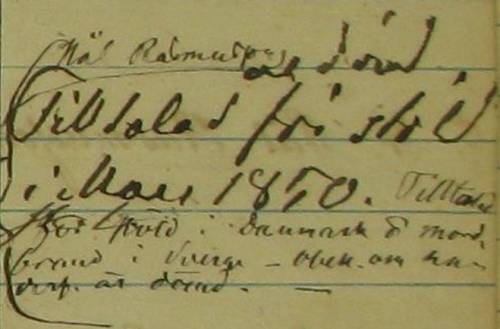 Nils Rasmusson
är död.
Tilltalad för stöld
i Mars 1870. Tilltalad
för stöld i Danmark o mord-
brand i Sverge – obek. om han
derf. är dömd. –